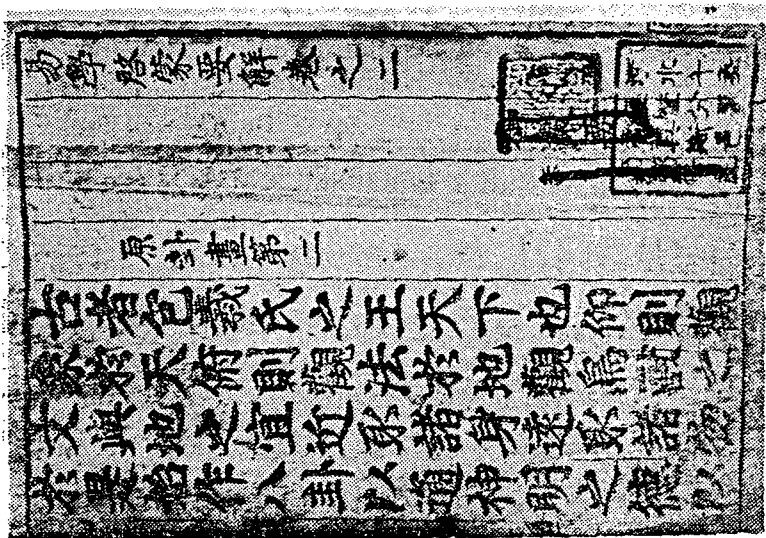 易學啓蒙要解卷之二
原卦畫第二
古者包羲氏之王天下也仰則觀
象於天俯則觀法於地觀鳥獸之
文與地之宜近取諸身遠取諸物
於是始作八卦以通神明之德以